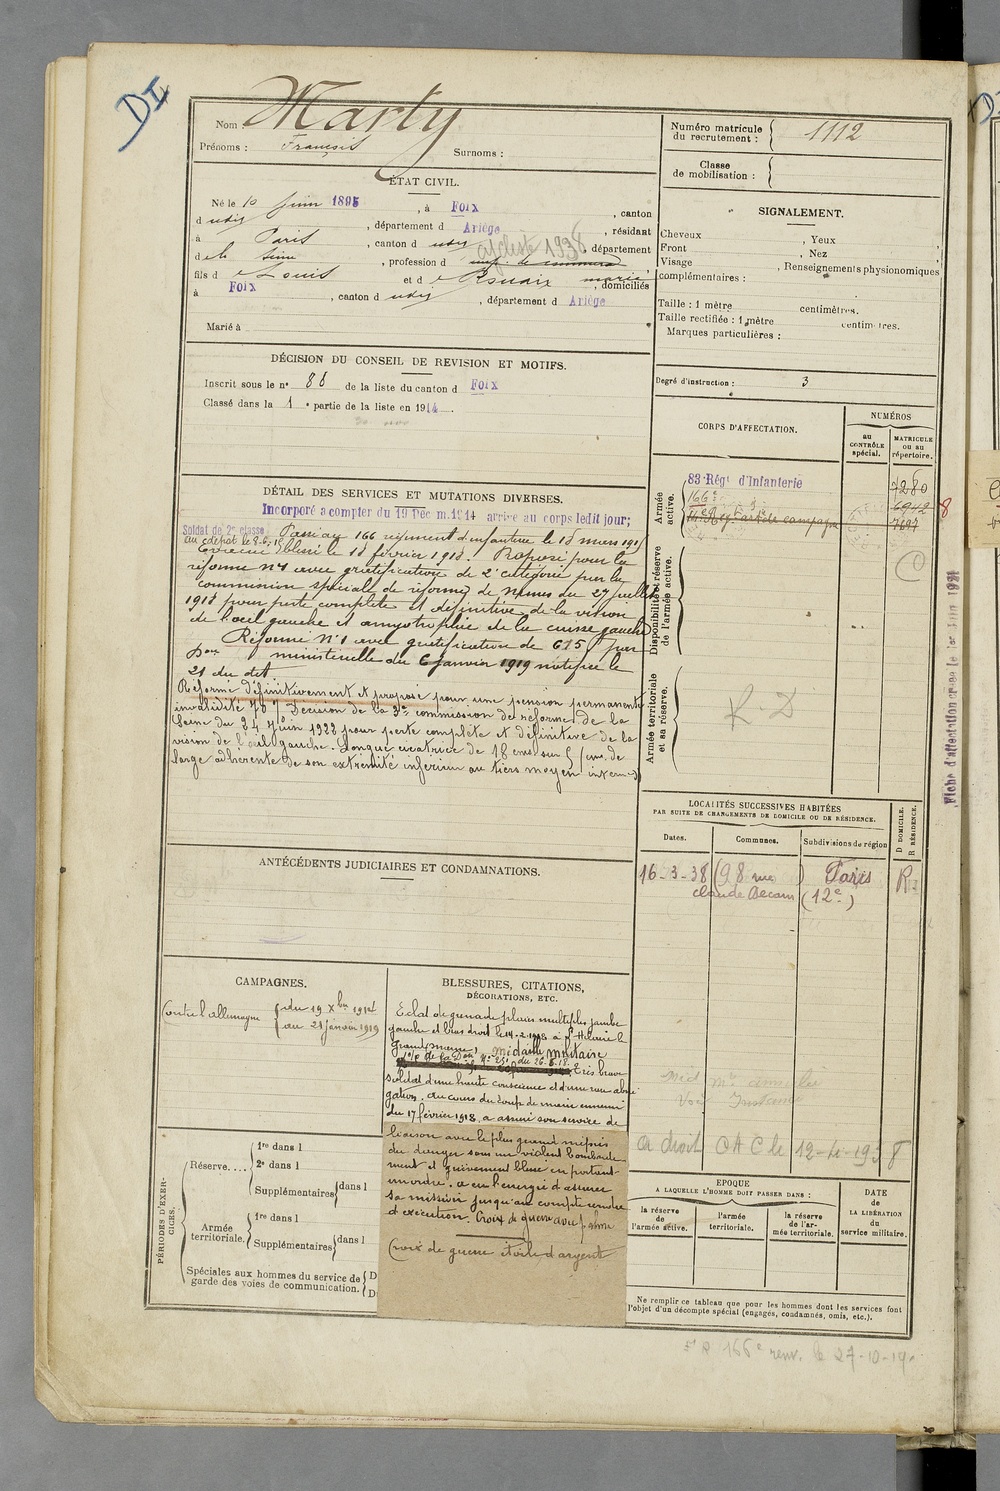 DI
Nom : Marty
Prénoms : François Surnoms :
Numéro matricule du recrutement : 1112
Classe de mobilisation :
ÉTAT CIVIL.
Né le 10 juin 1895, à Foix, canton
d udig, département d Ariège, résidant
à Paris, canton d udig, département
d e la Seine, profession d
cycliste 1938
fils d e Louis et d e Rouaix marie, domiciliés
à Foix, canton d udig, département d Ariège
Marié à
SIGNALEMENT.
Cheveux , Yeux
Front , Nez
Visage , Renseignements physionomiques
complémentaires :
Taille : 1 mètre centimètres.
Taille rectifiée : 1 mètre centimètres.
Marques particulières :
DÉCISION DU CONSEIL DE REVISION ET MOTIFS.
Inscrit sous le n° 88 de la liste du canton d Foix
Classé dans la 1e partie de la liste en 1914.
Degré d'instruction : 3
CORPS D'AFFECTATION.
NUMÉROS
au CONTRÔLE spécial.
MATRICULE OU AU répertoire.
Armée active.
83e Régt d'Infanterie 7280
166e 6942
7697
8
Disponibilité et réserve de l'armée active.
Armée territoriale et sa réserve.
R. D
Fiche d'affectation créée le 1er Juin 1921
DÉTAIL DES SERVICES ET MUTATIONS DIVERSES.
Incorporé a compter du 19 Déc m. 1914 arrivé au corps ledit jour;
Soldat de 2e classe Passé au 166 régiment d'infanterie le 15 mars 191
Evacué blessé le 18 février 1918. Proposé pour la
réforme n°1 avec gratification de 2e catégorie par la
commission spéciale de réforme de Nimes du 27 juillet
1918 pour perte complète et définitive de la vision
de l'oeil gauche et amyotrophie de la cuisse gauche
Réformé N°1 avec gratification de 675 f par
Don ministérielle du 6 janvier 1919 notifiée le
21 du dit
Réformé définitivement et proposé pour une pension permanente
invalidité 70 % Décision de la 3e commission de réforme de la
Seine du 24 Juin 1922 pour perte complète et définitive de la
vision de l'oeil gauche. Longue cicatrice de 18 cms sur 5 cms de
large adhérente de son extrémité inférieure au tiers moyen
LOCALITÉS SUCCESSIVES HABITÉES
PAR SUITE DE CHANGEMENTS DE DOMICILE OU DE RÉSIDENCE.
Dates. Communes. Subdivisions de région
D DOMICILE. R RÉSIDENCE.
16-3-38 (98 rue ) Paris R
claude Decaen (12e)
ANTÉCÉDENTS JUDICIAIRES ET CONDAMNATIONS.
CAMPAGNES.
Contre l'allemagne du 19 Xbre 1914
au 21 janvier 1919
BLESSURES, CITATIONS,
DÉCORATIONS, ETC.
Eclat de grenade plaies multiples jambe
gauche et bras droit le 14-2-1918 à St Hilaire le
Grand Marne, Médaille militaire
Très brave
soldat d'une haute conscience et d'une rare abné
gation. Au cours du coup de main ennemi
du 17 février 1918, a assuré son service de
liaison avec le plus grand mépris
du danger sous un violent bombarde
ment et grièvement blessé en portant
un ordre, a eu l'énergie d'assurer
sa mission jusqu'au compte rendu
d'exécution. Croix de guerre avec palme
Croix de guerre étoile d'argent
a droit CAC le 12-4-1938
PÉRIODES D'EXERCICES.
Réserve....
1re dans l
2e dans l
Supplémentaires dans l
Armée territoriale.
1re dans l
Supplémentaires dans l
Spéciales aux hommes du service de garde des voies de communication. D D
EPOQUE
A LAQUELLE L'HOMME DOIT PASSER DANS :
la réserve de l'armée active.
l'armée territoriale.
la réserve de l'armée territoriale.
DATE DE LA LIBÉRATION du service militaire.
Ne remplir ce tableau que pour les hommes dont les services font
l'objet d'un décompte spécial (engagés, condamnés, omis, etc.).
166e renv. le 27-10-19